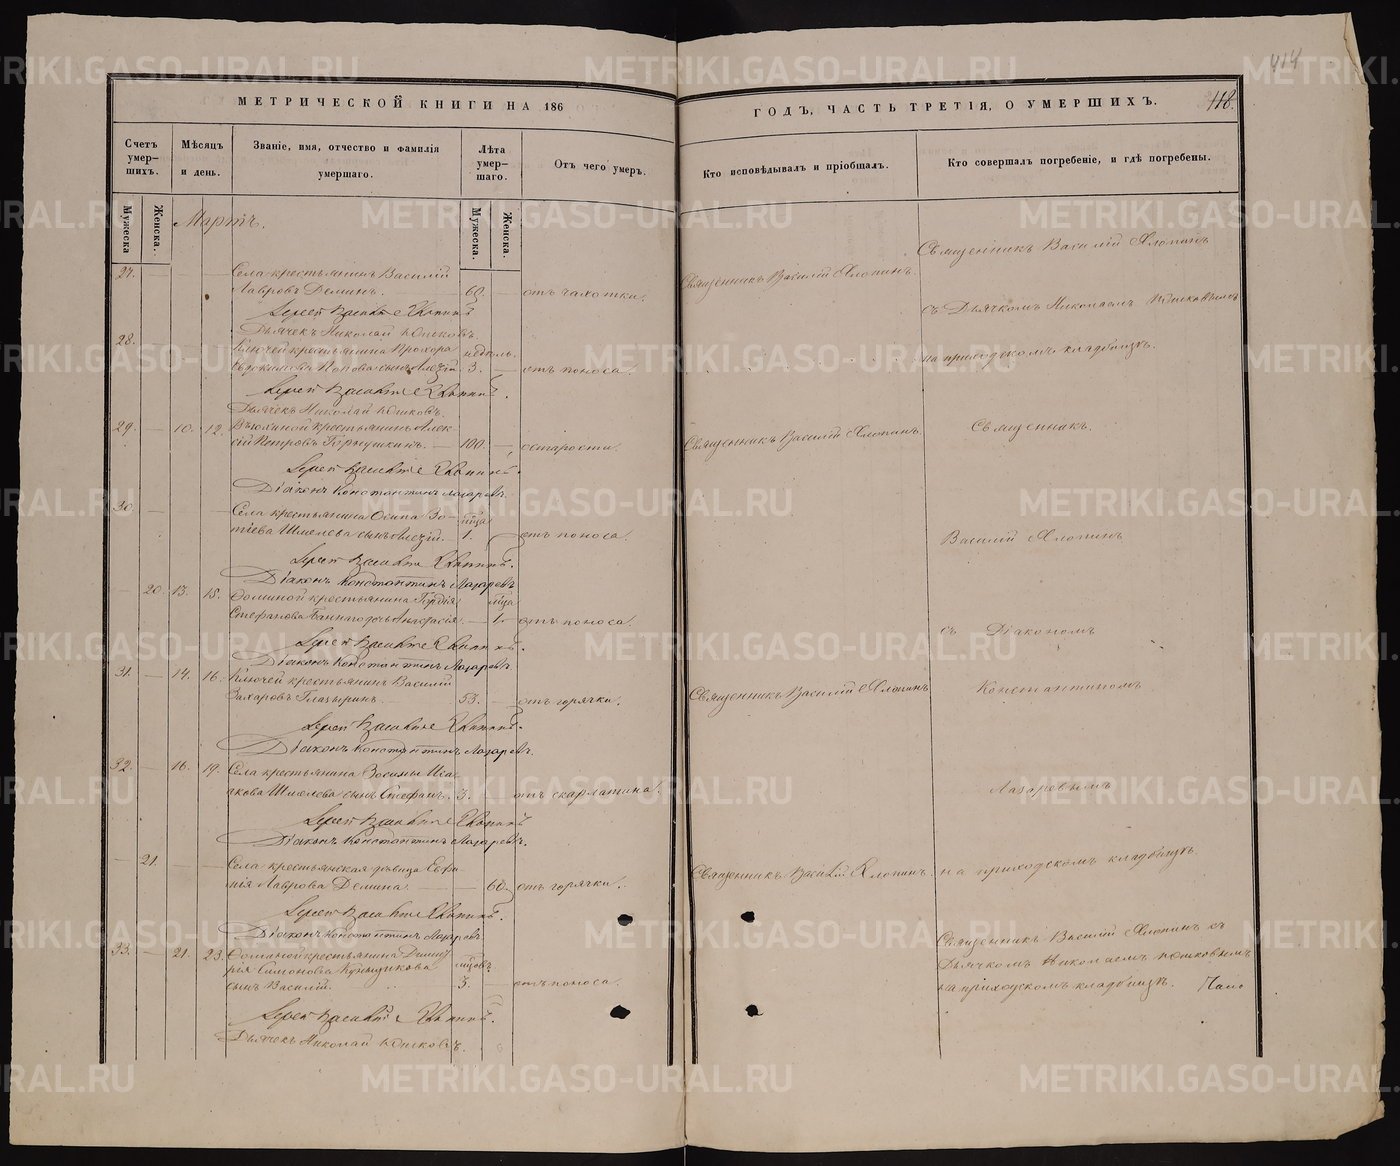 414
МЕТРИЧЕСКОЙ КНИГИ НА 186
ГОДЪ, ЧАСТЬ ТРЕТІЯ, О УМЕРШИХЪ.
118.
Счетъ умер-шихъ.
Мѣсяцъ и день.
Званіе, имя, отчество и фамилія умершаго.
Лѣта умер-шаго.
Отъ чего умеръ.
Кто исповѣдывалъ и пріобщалъ.
Кто совершалъ погребеніе, и гдѣ погребены.
Мужеска
Женска.
Мужеска.
Женска.
Мартъ.
27.
Села крестьянинъ Василій
Лавровъ Деминъ. 60. отъ чахотки.
Священникъ Василій Хлопинъ.
Священникъ Василій Хлопинъ
съ Дьячкомъ Николаемъ
на приходскомъ кладбищѣ.
Іерей Василій Хлопинъ
Дьячекъ Николай
28.
Ключей крестьянина Прохора
недѣль.
Попова сынъ 3. отъ поноса.
Іерей Василій Хлопинъ.
Дьячекъ Николай
29. 10. 12. крестьянинъ Алек-
сій Петровъ 100. старости.
Священникъ Василій Хлопинъ.
Священникъ
Іерей Василій Хлопинъ.
Діаконъ Константинъ Лазаревъ.
30.
Села крестьянина Осипа Зо-
тіева Шмелева сынъ 1. отъ поноса.
Василій Хлопинъ
Іерей Василій Хлопинъ.
Діаконъ Константинъ Лазаревъ
20. 13. 15. Фоминой крестьянина
Стефанова дочь Анастасія. 1. отъ поноса.
съ Діакономъ
Іерей Василій Хлопинъ.
Діаконъ Константинъ Лазаревъ.
31. 14. 16. Ключей крестьянинъ Василій
Захаровъ Глазыринъ. 53. отъ горячки.
Священникъ Василій Хлопинъ
Константиномъ
Іерей Василій Хлопинъ.
Діаконъ Константинъ Лазаревъ.
32. 16. 19. Села крестьянина Зосимы Иса-
акова Шмелева сынъ Стефанъ. 3. отъ скарлатина.
Лазаревымъ
Іерей Василій Хлопинъ
Діаконъ Константинъ Лазаревъ.
21.
Села крестьянская дѣвица Евѳи-
мія Лаврова Демина. 60. отъ горячки.
Священникъ Василій Хлопинъ.
на приходскомъ кладбищѣ.
Іерей Василій Хлопинъ.
Діаконъ Константинъ Лазаревъ.
33. 21. 23. Фоминой крестьянина Димит
рія Симонова
сынъ Василій. 3. отъ поноса.
Священникъ Василій Хлопинъ съ
Дьячкомъ Николаемъ
на приходскомъ кладбищѣ.
Іерей Василій Хлопинъ.
Дьячекъ Николай
METRIKI.GASO-URAL.RU